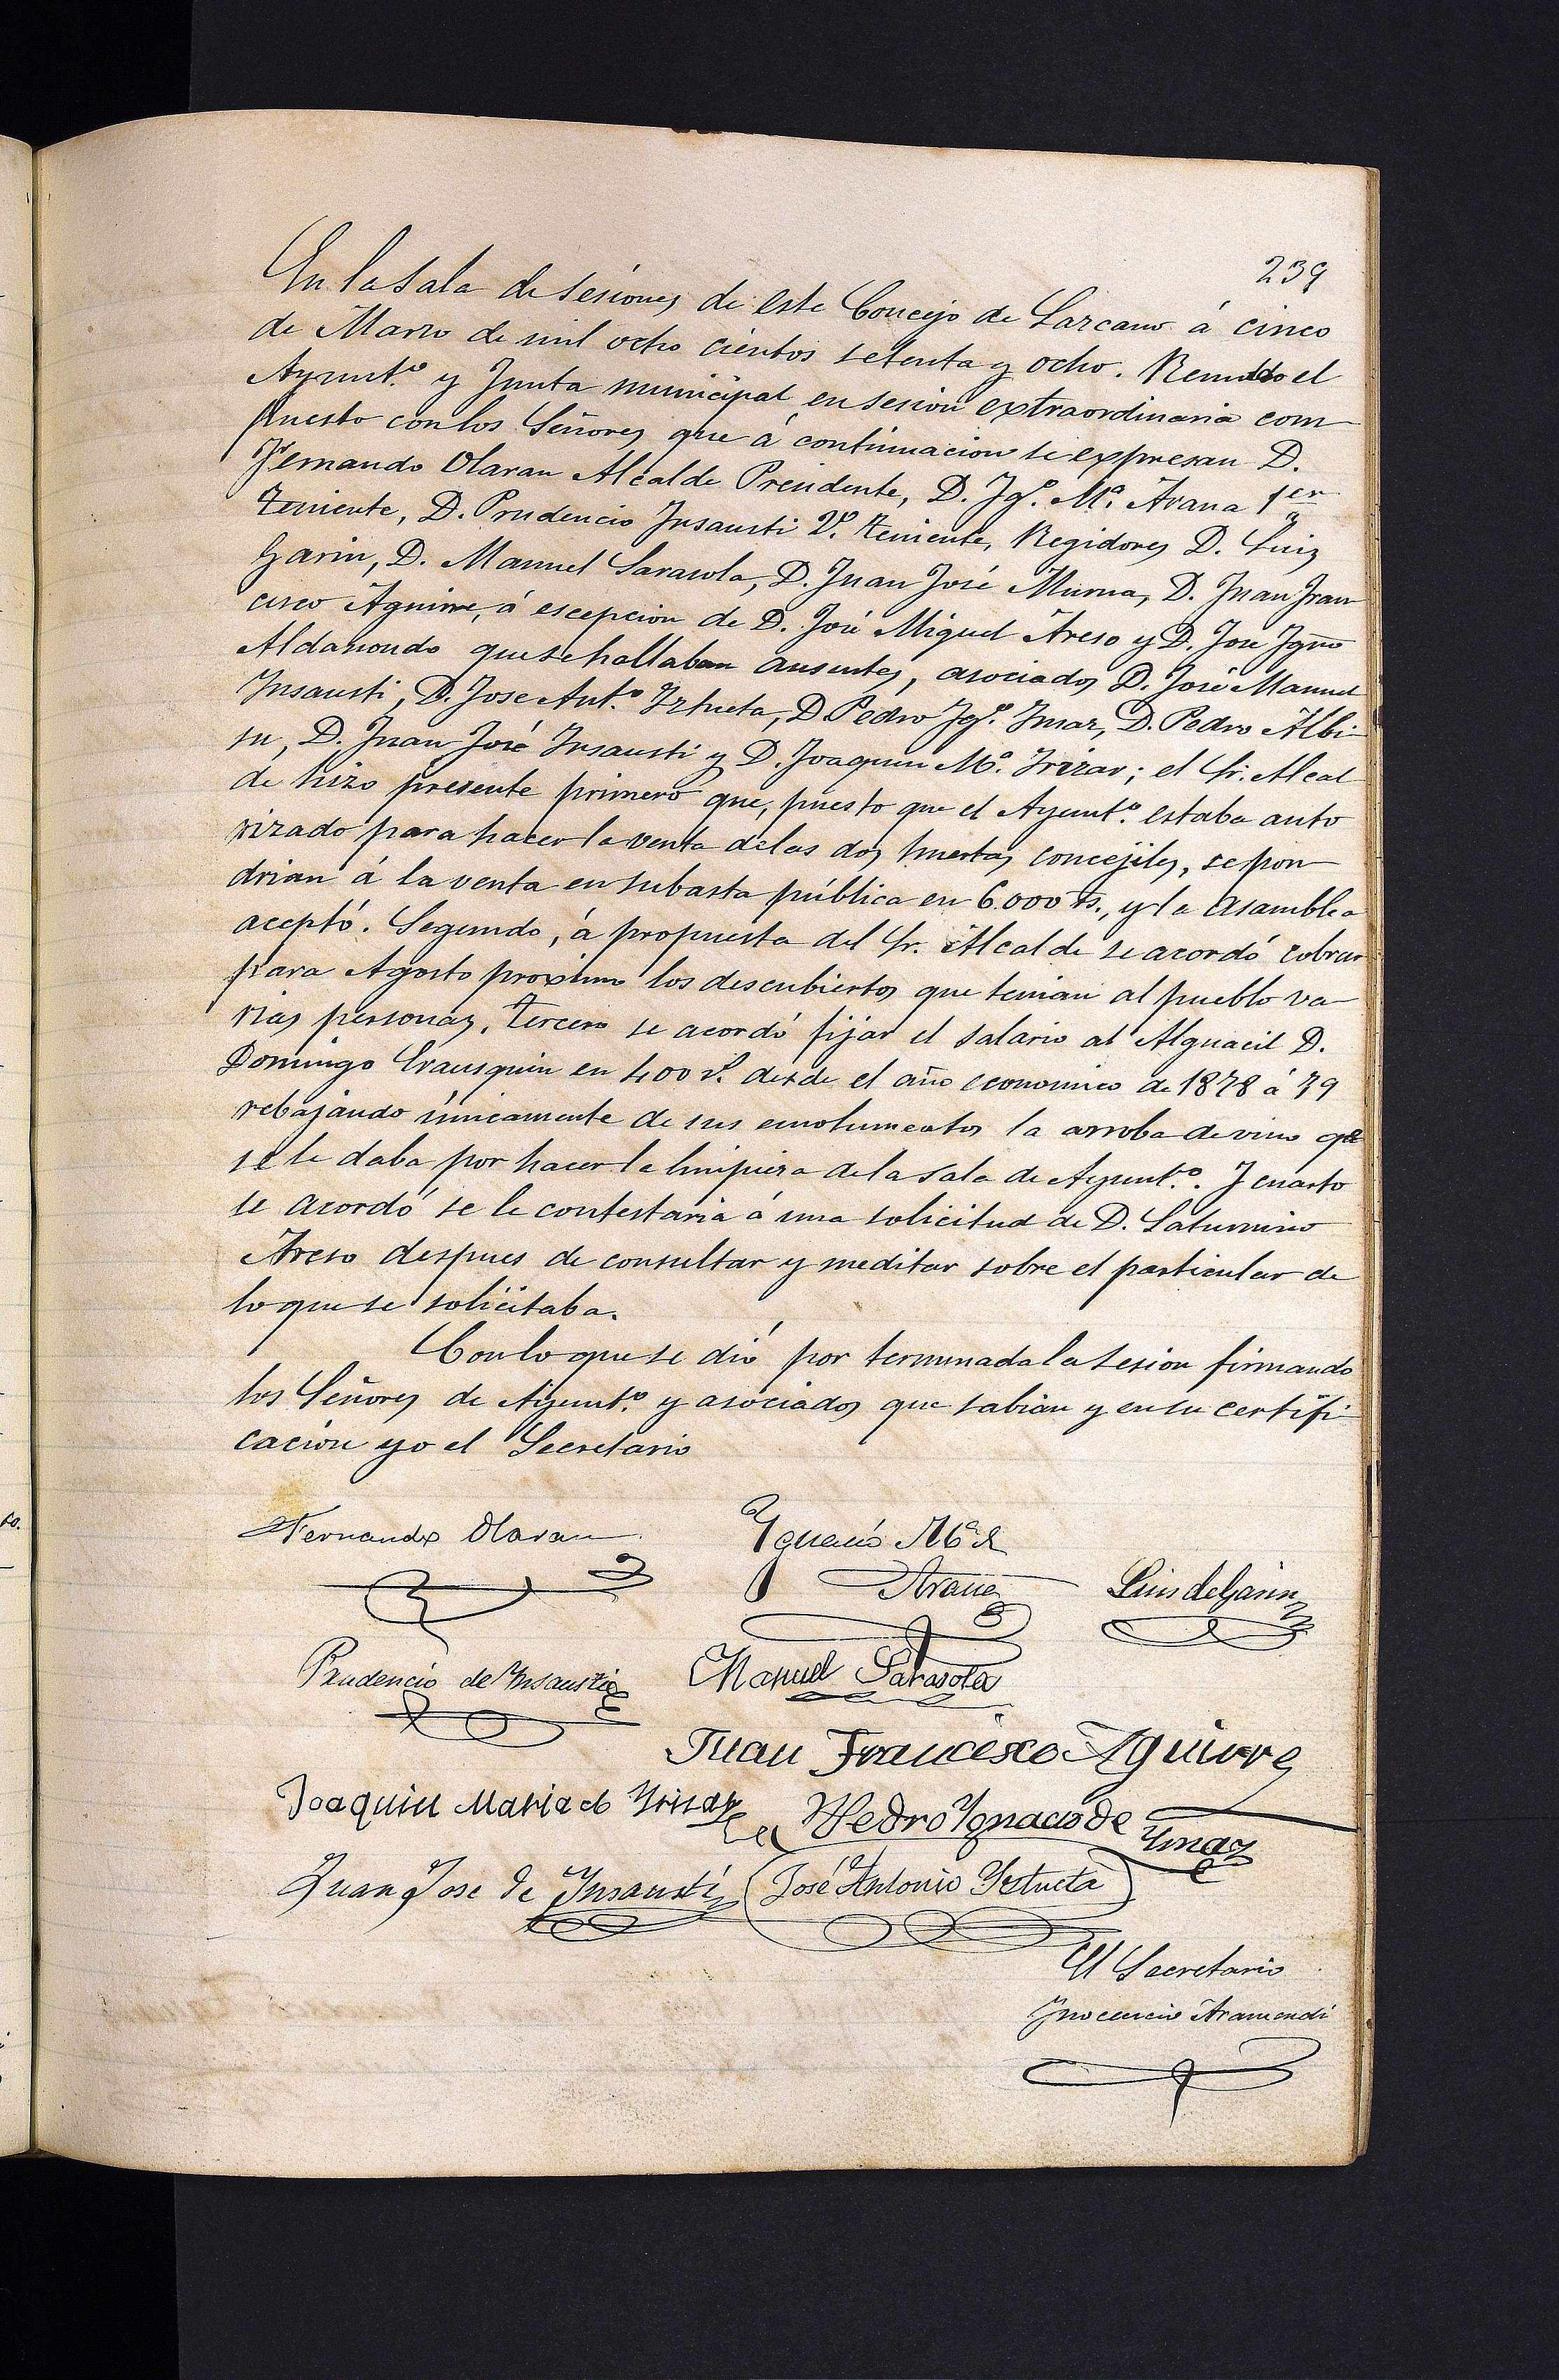 239
En la Sala de sesiones de este Concejo de Lazcano á cinco
de Marzo de mil ocho cientos setenta y ocho. Reunido el
Ayunt.º y Junta municipal en sesion extraordinaria com
puesto con los Señores que á continuacion se expresan D.
Fernando Olaran Alcalde Presidente, D. Ig.º M.ª Arana 1er
teniente, D. Prudencio Insausti 2.º teniente, Regidores D. Luis
Garin, D. Manuel Sarasola, D. Juan José Murua, D. Juan Fran
cisco Aguirre, á escepcion de D. José Miguel Areso y D. Jose Igno
Aldasondo que se hallaban ausentes, asociados D. José Manuel
Insausti, D. Jose Ant.º Iztueta, D Pedro Ig.º Imaz, D. Pedro Albi-
su, D. Juan José Insausti y D. Joaquin M.ª Irizar; el Sr. Alcal
de hizo presente primero que, puesto que el Ayunt.º estaba auto
rizado para hacer la venta de las dos huertas concejiles, se pon
drian á la venta en subasta pública en 6.000 rs., y la Asamblea
aceptó. Segundo, á propuesta del Sr. Alcalde se acordó cobrar
para Agosto proximo los descubiertos que tenian al pueblo va
rias personas. Tercero se acordó fijar el salario al Alguacil D.
Domingo Erausquin en 400 r.s desde el año economico de 1878 á 79
rebajando únicamente de sus emolumentos la arroba de vino qe
se le daba por hacer la limpieza de la sala de Ayunt.º. Y cuarto
se acordó se le contestaria á una solicitud de D. Saturnino
Areso despues de consultar y meditar sobre el particular de
lo que se solicitaba.
Con lo que se dió por terminada la sesion firmando
los Señores de Ayunt.º y asociados que sabian y en su certifi
cacion yo el Secretario
Fernando Olaran
Ygnacio Mª de
Arana
Luis de Garin
Prudencio de Ynsausti
Manuel Sarasola
Juan Francisco Aguirre
Joaquin Maria de Yrizar
Pedro Ygnacio de Ymaz
Juan Jose de Ynsausti
José Antonio Yztueta
El Secretario
Ynocencio Aramendi